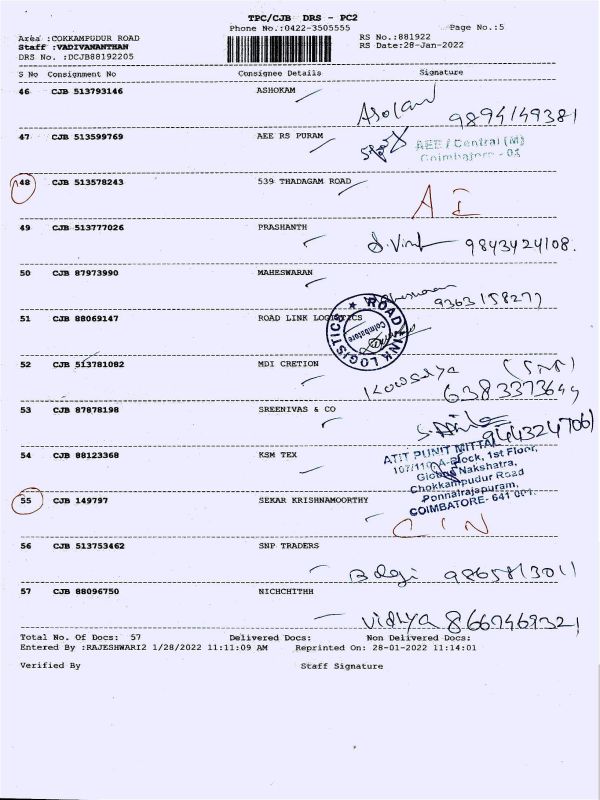 TPC/CJB DRS - PC2
Phone No.:0422-3505555 Page No.:5
Area :COKKAMPUDUR ROAD RS No.:881922
Staff :VADIVANANTHAN RS Date:28-Jan-2022
DRS No. :DCJB88192205
S No Consignment No Consignee Details Signature
46 CJB 513793146 ASHOKAM
9894149381
47 CJB 513599769 AEE RS PURAM
AEE / Central (M)
Coimbatore - 03
48 CJB 513578243 539 THADAGAM ROAD
A I
49 CJB 513777026 PRASHANTH
9843424108.
50 CJB 87973990 MAHESWARAN
9363158277
51 CJB 88069147 ROAD LINK LOGISTICS
ROAD LINK LOGISTICS
Coimbatore
52 CJB 513781082 MDI CRETION
Kowsalya
53 CJB 87878198 SREENIVAS & CO
9443247061
54 CJB 88123368 KSM TEX
ATIT PUNIT MITTAL
107/110 A-Block, 1st Floor,
Global Nakshatra,
Chokkampudur Road
Ponnairajapuram,
COIMBATORE- 641 001.
55 CJB 149797 SEKAR KRISHNAMOORTHY
C I N
56 CJB 513753462 SNP TRADERS
Balaji 9865813011
57 CJB 88096750 NICHCHITHH
Vidhya
Total No. Of Docs: 57 Delivered Docs: Non Delivered Docs:
Entered By :RAJESHWARI2 1/28/2022 11:11:09 AM Reprinted On: 28-01-2022 11:14:01
Verified By Staff Signature